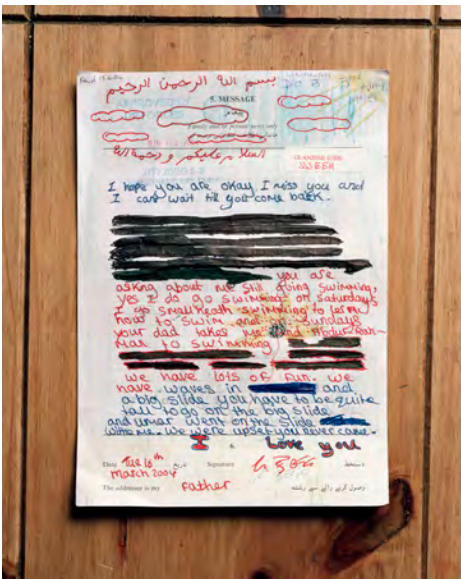 بسم الله الرحمن الرحيم
5. MESSAGE
Family and/or personal news only
السلام عليكم ورحمة الله
I hope you are okay I miss you and
I cant wait till you come back.
you are
asking about me still doing swimming,
yes I do go swimming on saturdays
I go smallheath swimming to lern
how to swim and on Sundays
your dad takes me and Abdur-Rah-
man to swimming
we have lots of fun. we
have waves in and
a big slide you have to be quite
tall to go on the big slide
and umar went on the slide
with me. we were upset you never came.
I Love you
6.
Date Tue 16th تاریخ Signature دستخط
March 2004
The addressee is my Father